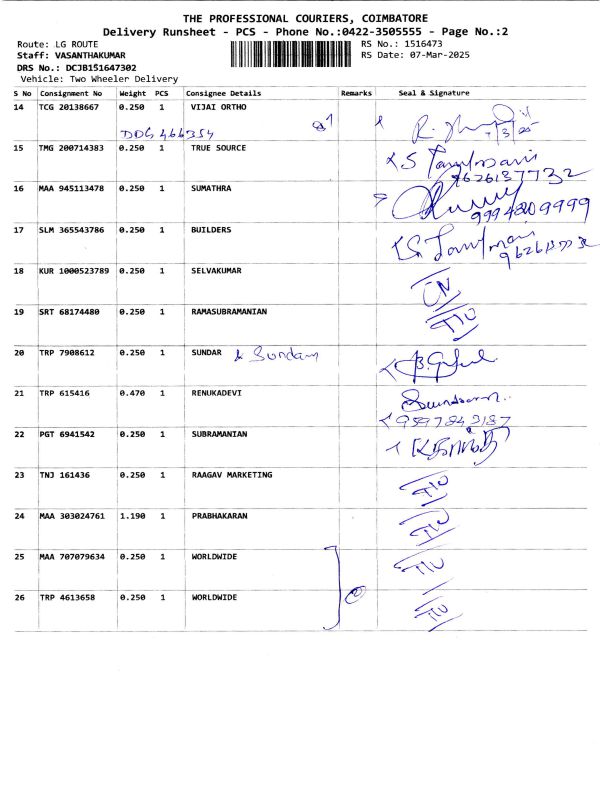 THE PROFESSIONAL COURIERS, COIMBATORE
Delivery Runsheet - PCS - Phone No.:0422-3505555 - Page No.:2
Route: LG ROUTE
RS No.: 1516473
Staff: VASANTHAKUMAR
RS Date: 07-Mar-2025
DRS No.: DCJB151647302
Vehicle: Two Wheeler Delivery
S No Consignment No Weight PCS Consignee Details Remarks Seal & Signature
14 TCG 20138667 0.250 1 VIJAI ORTHO
DDG 466354
7/3/25
15 TMG 200714383 0.250 1 TRUE SOURCE
9626137732
16 MAA 945113478 0.250 1 SUMATHRA
9994809999
17 SLM 365543786 0.250 1 BUILDERS
18 KUR 1000523789 0.250 1 SELVAKUMAR
19 SRT 68174480 0.250 1 RAMASUBRAMANIAN
20 TRP 7908612 0.250 1 SUNDAR
21 TRP 615416 0.470 1 RENUKADEVI
22 PGT 6941542 0.250 1 SUBRAMANIAN
23 TNJ 161436 0.250 1 RAAGAV MARKETING
24 MAA 303024761 1.190 1 PRABHAKARAN
25 MAA 707079634 0.250 1 WORLDWIDE
26 TRP 4613658 0.250 1 WORLDWIDE